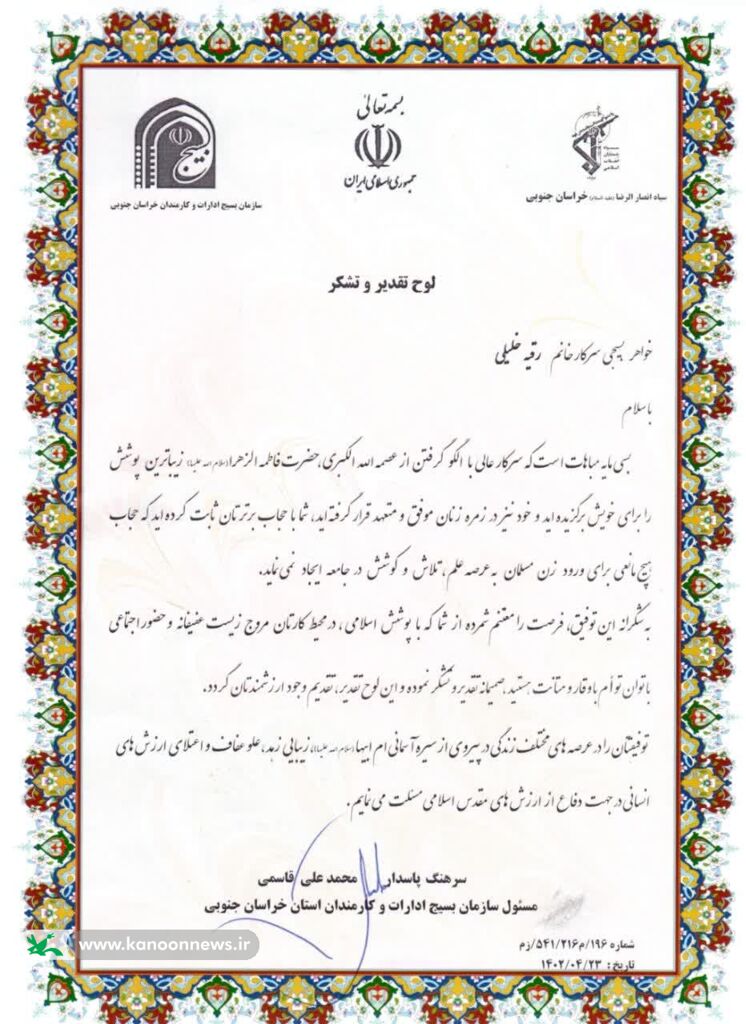 بسمه تعالی
جمهوری اسلامی ایران
بسیج
سازمان بسیج ادارات و کارمندان خراسان جنوبی
سپاه
پاسداران
انقلاب
اسلامی
سپاه انصار الرضا (علیه السلام) خراسان جنوبی
لوح تقدیر و تشکر
خواهر بسیجی سرکار خانم رقیه خلیلی
با سلام
بسی مایه مباهات است که سرکار عالی با الگو گرفتن از عصمه الله الکبری، حضرت فاطمه الزهرا (سلام الله علیها) زیباترین پوشش
را برای خویش برگزیده اید و خود نیز در زمره زنان موفق و متعهد قرار گرفته اید، شما با حجاب برترتان ثابت کرده اید که حجاب
هیچ مانعی برای ورود زن مسلمان به عرصه علم، تلاش و کوشش در جامعه ایجاد نمی نماید.
به شکرانه این توفیق، فرصت را مغتنم شمرده از شما که با پوشش اسلامی، در محیط کارتان مروج زیست عفیفانه و حضور اجتماعی
با توان توأم با وقار و متانت هستید، صمیمانه تقدیر و تشکر نموده و این لوح تقدیر، تقدیم وجود ارزشمندتان گردد.
توفیقتان را در عرصه های مختلف زندگی در پیروی از سیره آسمانی ام ابیها (سلام الله علیها)، زیبایی زهد، علو عفاف و اعتلای ارزش های
انسانی در جهت دفاع از ارزش های مقدس اسلامی مسئلت می نمایم.
سرهنگ پاسدار محمد علی قاسمی
مسئول سازمان بسیج ادارات و کارمندان استان خراسان جنوبی
شماره ۱۹۶/م/۵۴۱/۲۱۶/زم
تاریخ: ۱۴۰۲/۰۴/۲۳
www.kanoonnews.ir